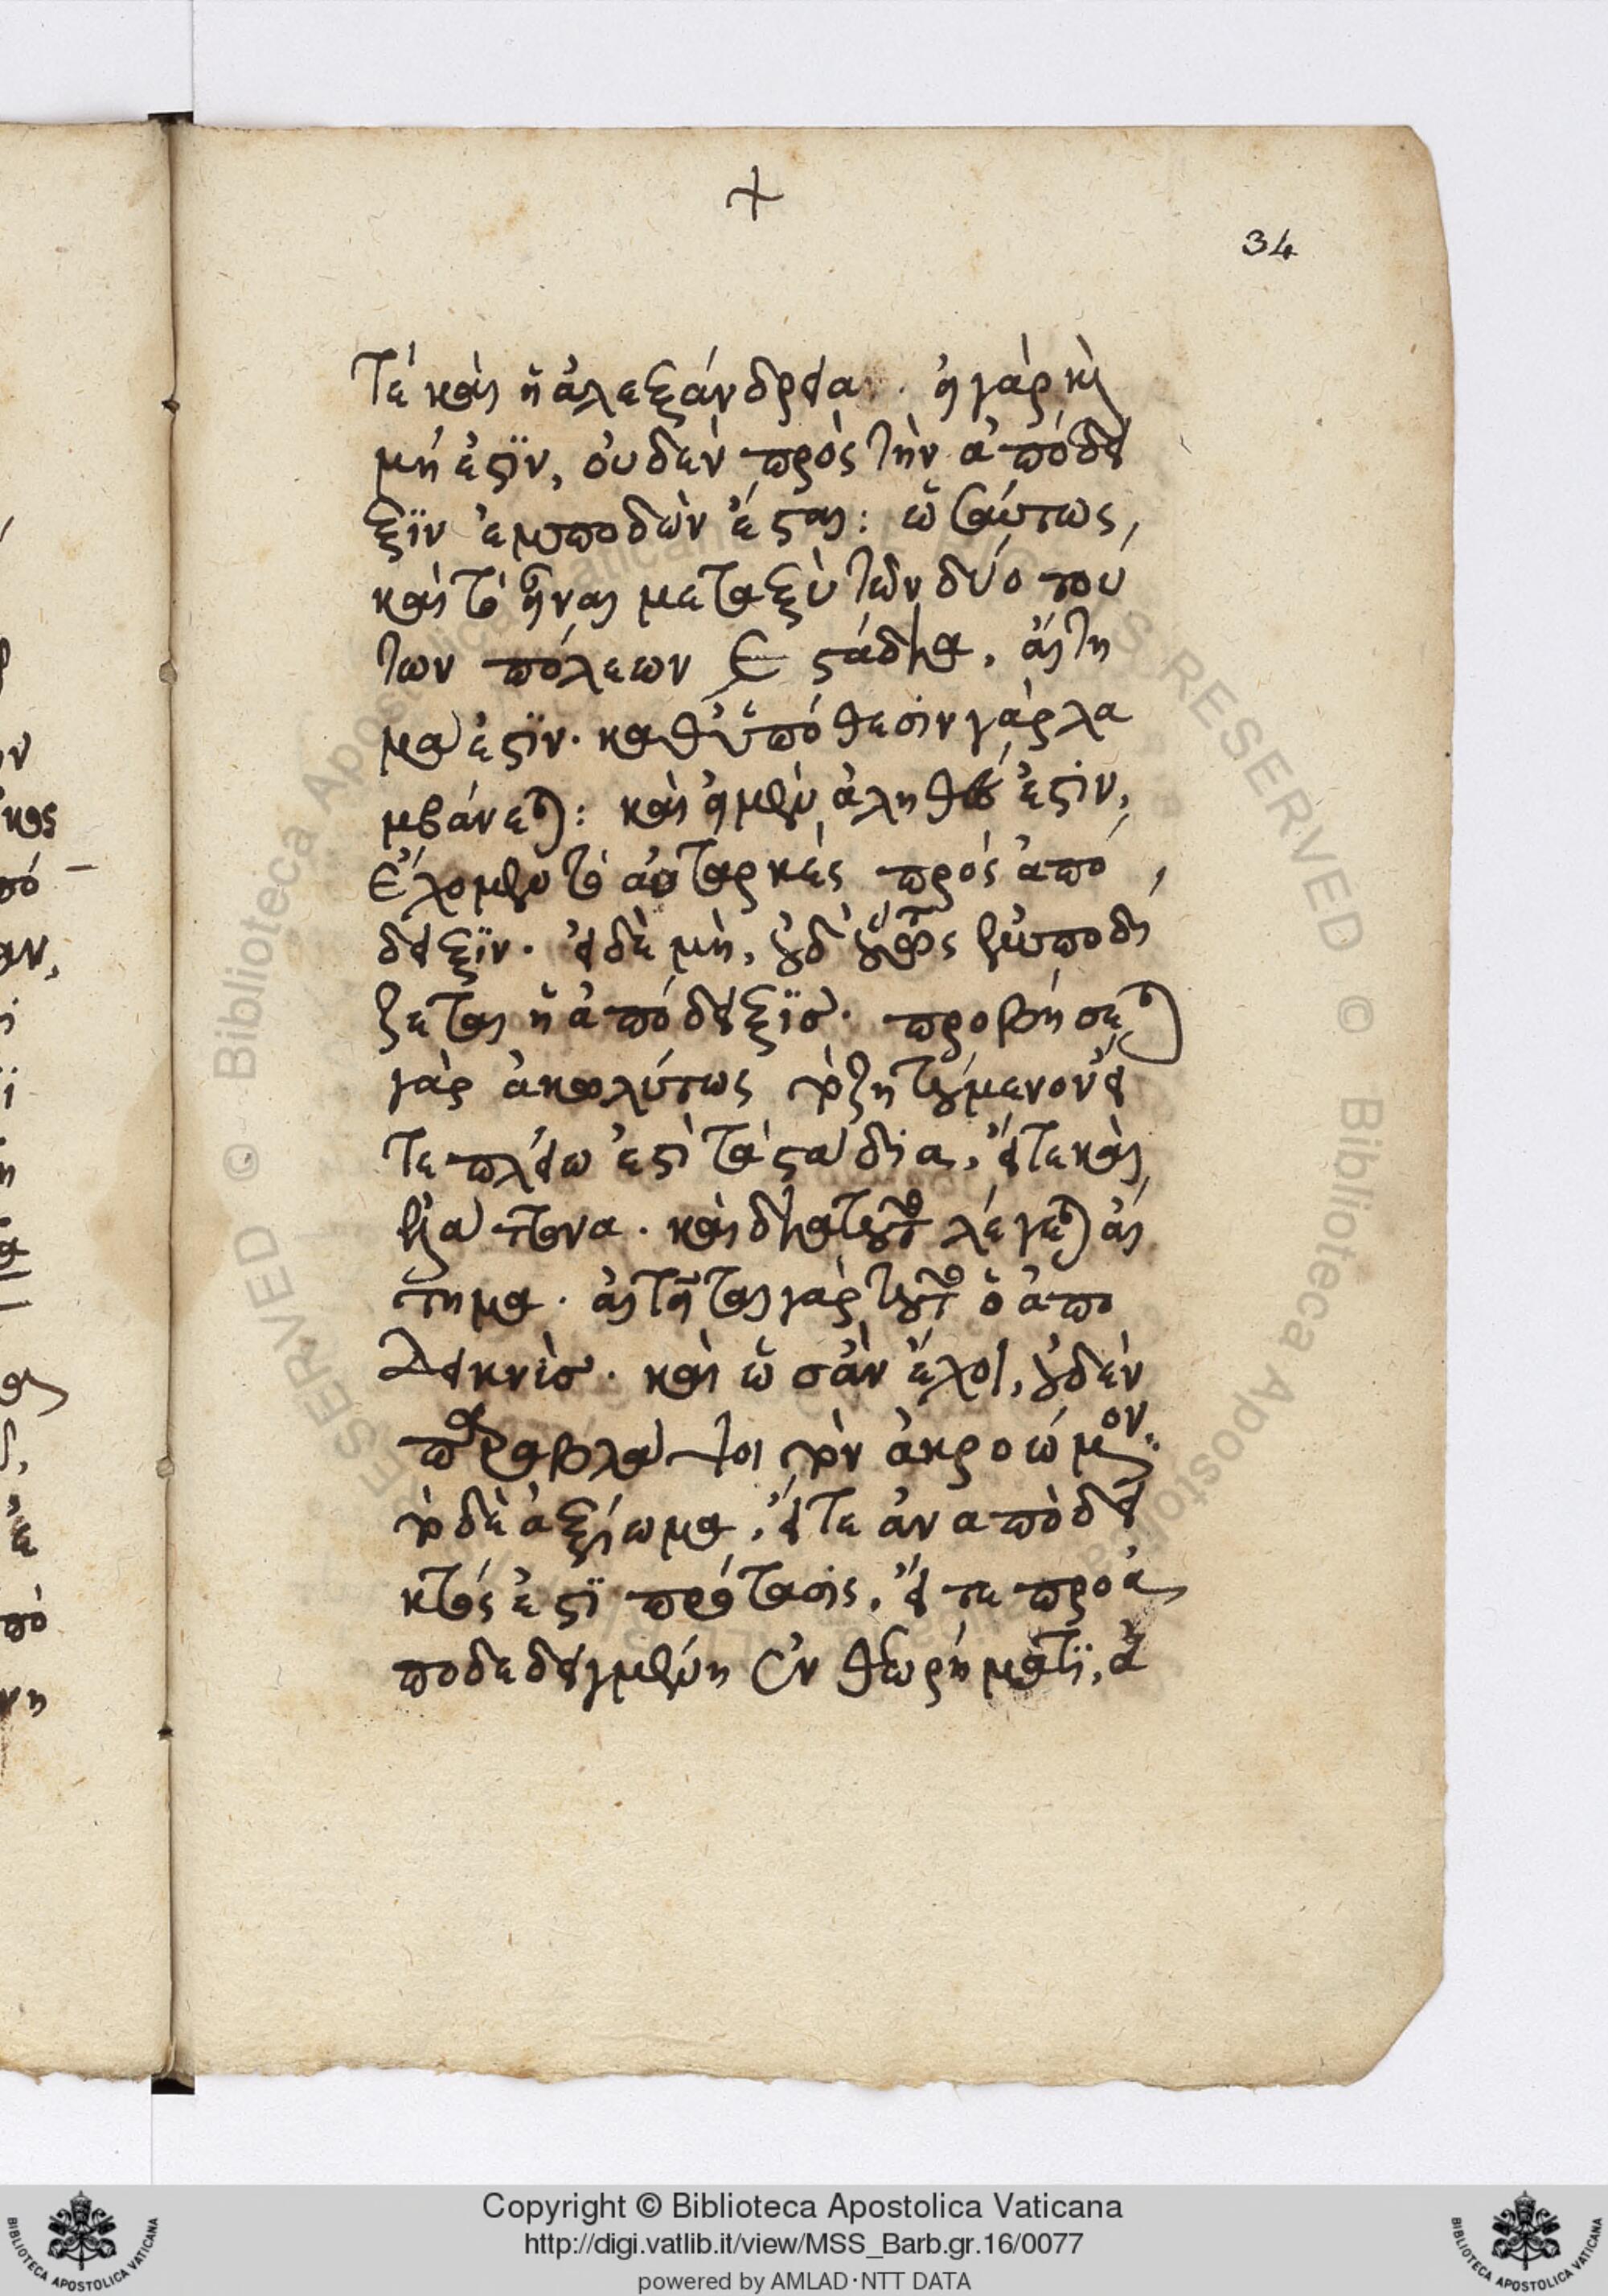 +
34
τέ καὶ ἡ ἀλεξάνδρεια. εἰ γὰρ καὶ
μή ἐστϊν, οὐδὲν πρὸς τὴν ἀπόδει
ξϊν ἐμποδὼν ἔσται: ὡσαύτως,
καὶ τὸ εἶναι μεταξὺ τῶν δύο του
των πόλεων ͵ε στάδια, αἴτη
μα ἐστϊν. καθ ὑπόθεσιν γὰρ λα
μβάνεται: καὶ εἰ μὲν ἀληθὲς ἐστὶν,
ἔχομεν τὸ αὐταρκὲς πρὸς ἀπό
δειξϊν. εἰ δὲ μὴ, οὐδ οὕτως ἐμποδί
ζεται ἡ ἀπόδειξϊσ. προβήσεται
γὰρ ἀκωλύτως τὸ ζητούμενον εἴ
τε πλείω ἐστὶ τὰ στάδια, εἴτε καὶ
ἐλάττονα. καὶ διατοῦτο λέγεται αἴ
τημα. αἰτεῖται γὰρ τοῦτο ὁ ἀπο
δεικνὺσ. καὶ ὡσ ἂν ἔχοι, οὐδὲν
παραβλάπτοι τὸν ἀκροώμενον:
τὸ δὲ ἀξίωμα, εἴτε ἀναπόδει
κτός ἐστϊ πρότασις, εἴτε προα
ποδεδειγμένη ἐν θεωρήματϊ, ἀ
Copyright © Biblioteca Apostolica Vaticana
http://digi.vatlib.it/view/MSS_Barb.gr.16/0077
powered by AMLAD·NTT DATA